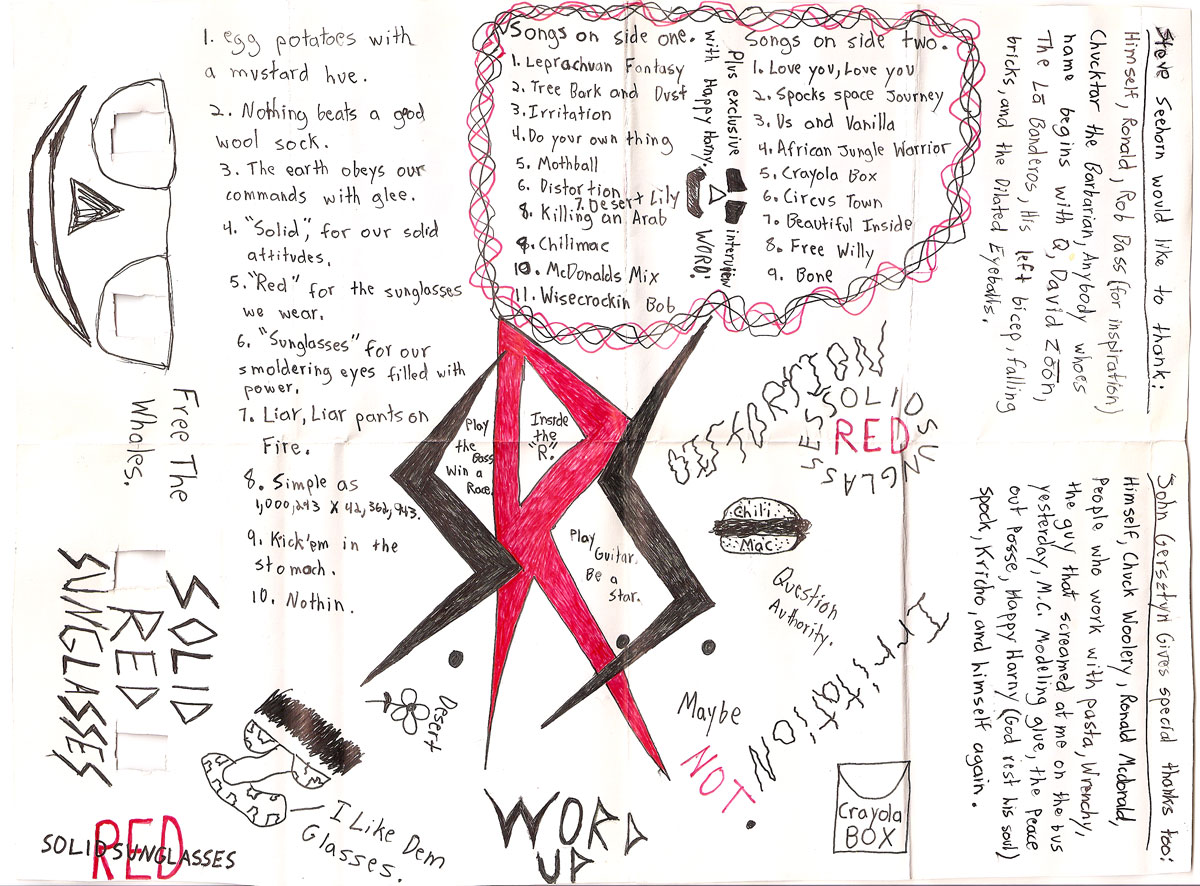 1. egg potatoes with
a mustard hue.
2. Nothing beats a good
wool sock.
3. The earth obeys our
commands with glee.
4. "Solid", for our solid
attitudes.
5. "Red" for the sunglasses
we wear.
6. "Sunglasses" for our
smoldering eyes filled with
power.
7. Liar, Liar pants on
Fire.
8. Simple as
1,000,243 X 42,362,943.
9. Kick'em in the
stomach.
10. Nothin.
Songs on side one.
1. Leprachuan Fantasy
2. Tree Bark and Dust
3. Irritation
4. Do your own thing
5. Mothball
6. Distortion
7. Desert Lily
8. Killing an Arab
9. Chilimac
10. McDonalds Mix
11. Wisecrockin Bob
Plus exclusive interview
with Happy Harny. WORD!
Songs on side two.
1. Love you, Love you
2. Spocks space Journey
3. Us and Vanilla
4. African Jungle Warrior
5. Crayola Box
6. Circus Town
7. Beautiful Inside
8. Free Willy
9. Bone
Steve Seehorn would like to thank:
Himself, Ronald, Rob Bass (for inspiration)
Chucktar the Barbarian, Anybody whoes
name begins with Q, David Zöön,
The Lā Banderos, His left bicep, falling
bricks, and the Dilated Eyeballs.
John Gersztyn Gives special thanks too:
Himself, Chuck Woolery, Ronald Mcdonald,
People who work with pasta, Wrenchy,
the guy that screamed at me on the bus
yesterday, M.C. Modeling glue, the Peace
out Posse, Happy Harny (God rest his soul)
spock, Kricho, and himself again.
Free The
Whales.
SOLID
RED
SUNGLASSES
SOLID SUNGLASSES
RED
Play
the Bass
Win a
Race.
Inside
the
"R".
Play
Guitar.
Be a
Star.
DISTORTION
SOLID
RED
SUNGLASSES
Chili
Mac
Question
Authority.
Irritation
Maybe
NOT.
Desert
I Like Dem
Glasses.
WORD
UP
Crayola
BOX